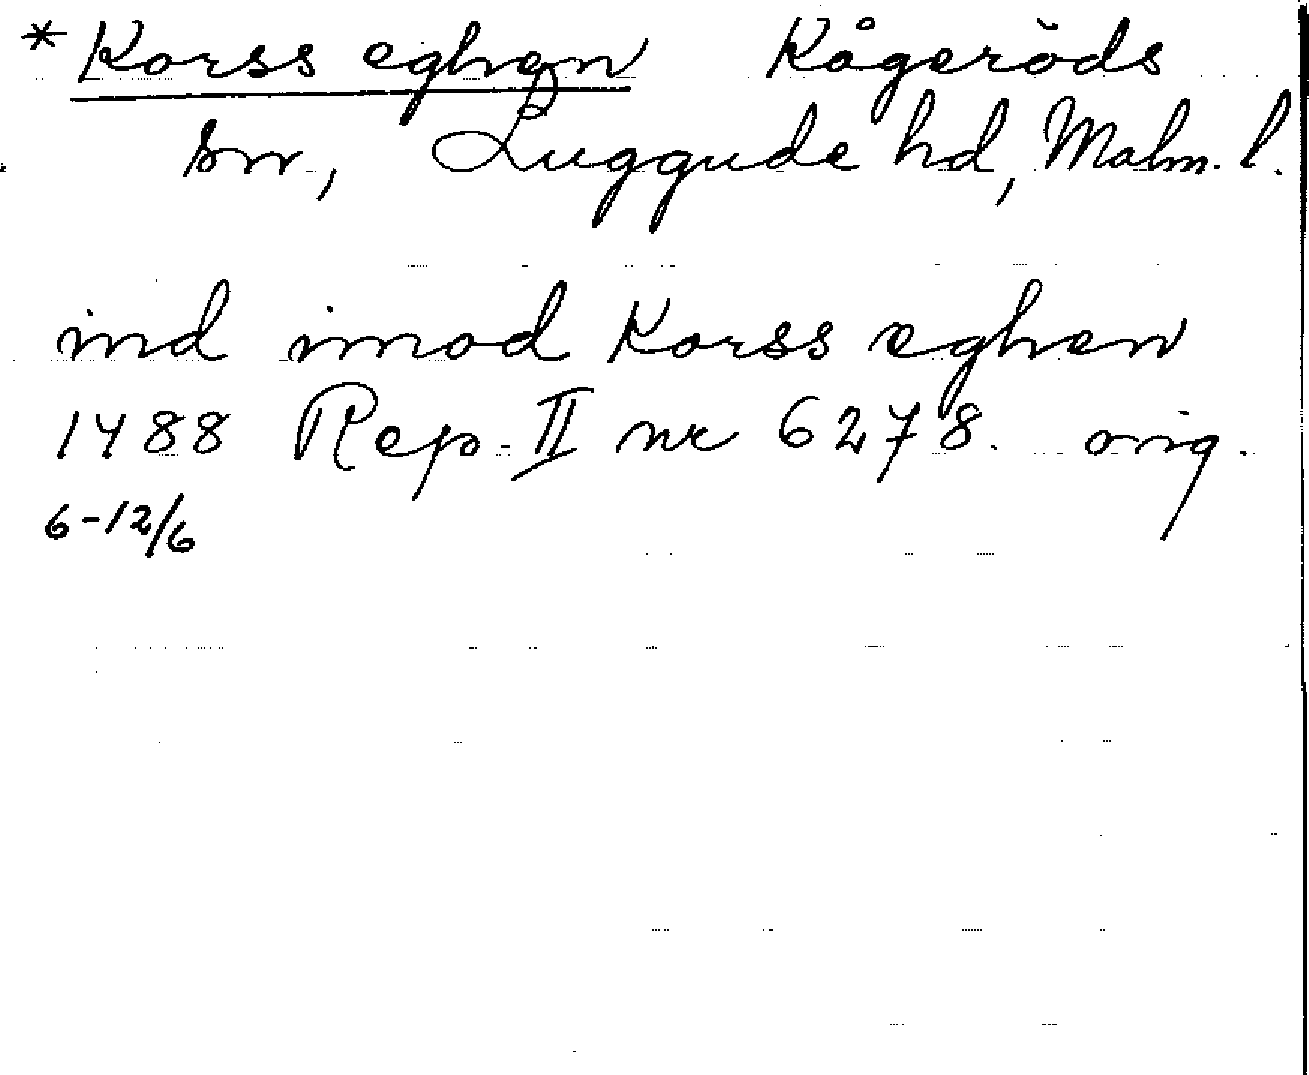 *Korss eghen Kågeröds
sn, Luggude hd, Malm. l.
ind imod Korss eghen
1488 Rep. II nr 6278. orig.
6-12/6